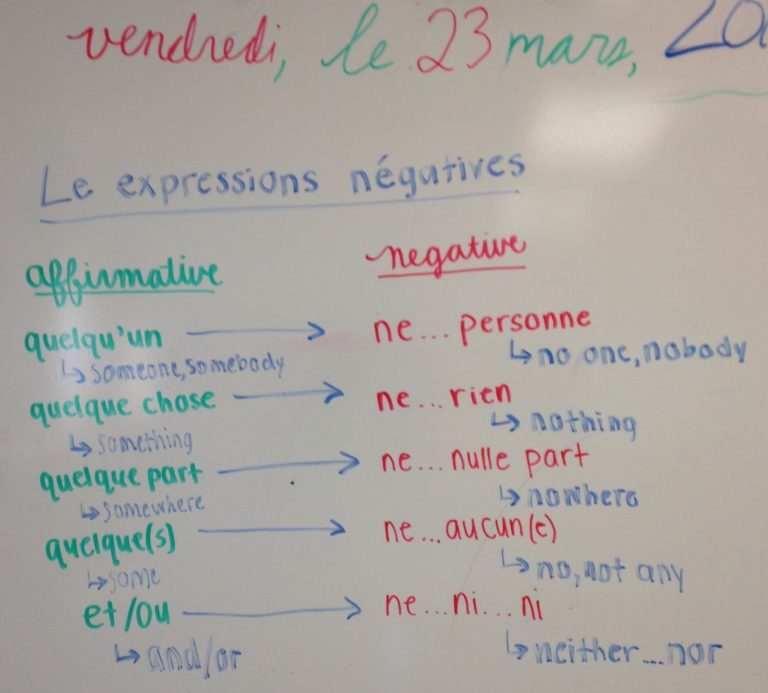 vendredi, le 23 mars,
Le expressions négatives
affirmative negative
quelqu'un → ne... personne
↳ someone, somebody ↳ no one, nobody
quelque chose → ne... rien
↳ something ↳ nothing
quelque part → ne... nulle part
↳ somewhere ↳ nowhere
quelque(s) → ne... aucun(e)
↳ some ↳ no, not any
et/ou → ne... ni... ni
↳ and/or ↳ neither...nor